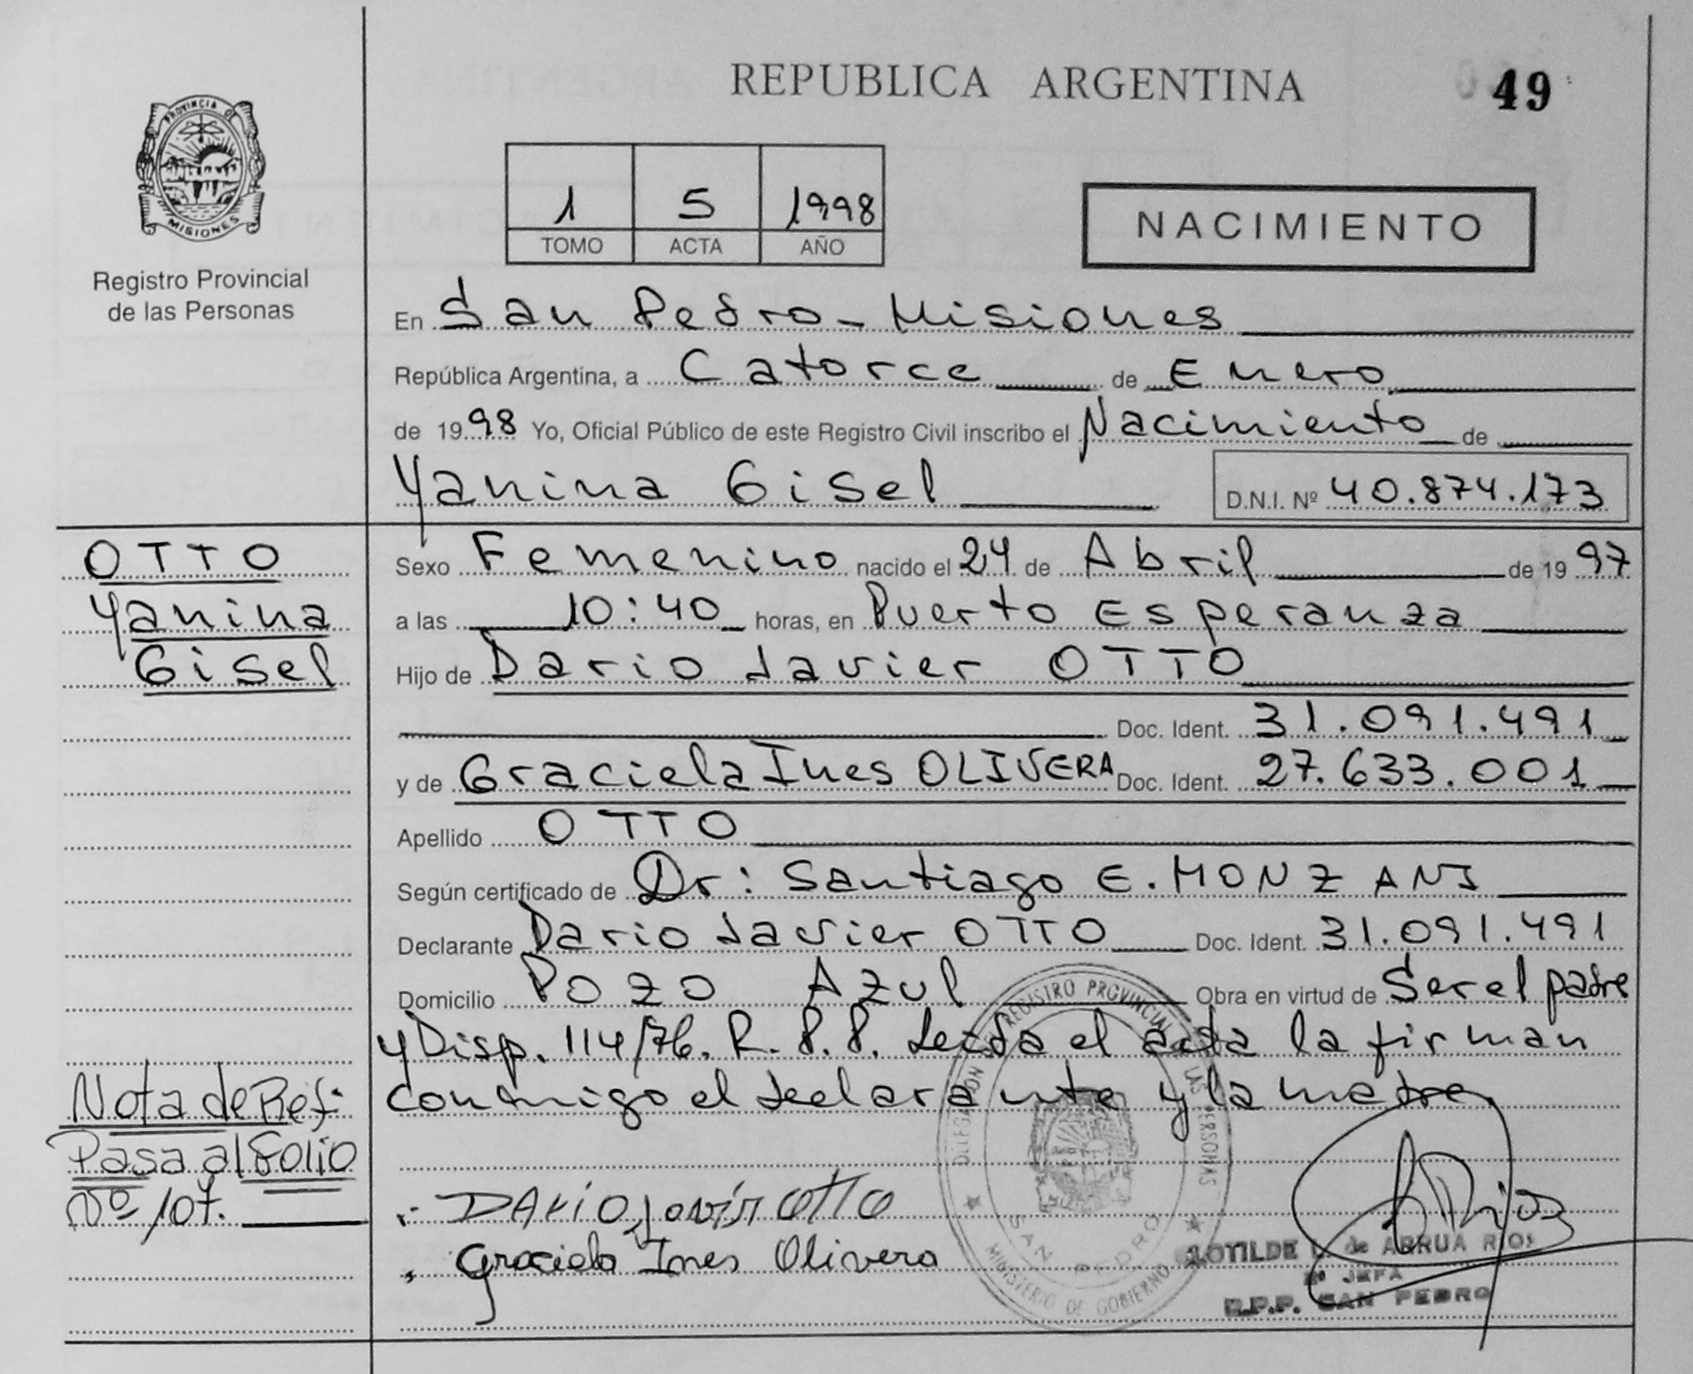 REPUBLICA ARGENTINA
49
PROVINCIA DE
MISIONES
Registro Provincial
de las Personas
1 5 1998
TOMO ACTA AÑO
NACIMIENTO
En San Pedro - Misiones
República Argentina, a Catorce de Enero
de 1998 Yo, Oficial Público de este Registro Civil inscribo el Nacimiento de
Yanina Gisel D.N.I. Nº 40.874.173
OTTO
Yanina
Gisel
Sexo Femenino nacido el 24 de Abril de 1997
a las 10:40 horas, en Puerto Esperanza
Hijo de Dario Javier OTTO
Doc. Ident. 31.091.491
y de Graciela Ines OLIVERA Doc. Ident. 27.633.001
Apellido OTTO
Según certificado de Dr: Santiago E. MONZANI
Declarante Dario Javier OTTO Doc. Ident. 31.091.491
Domicilio Pozo Azul Obra en virtud de Ser el padre
y Disp. 114/76. R.P.P. Leída el acta la firman
conmigo el declarante y la madre
Nota de Ref.
Pasa al Folio
Nº 107.
DARIO Javier OTTO
Graciela Ines Olivera
DELEGACION REGISTRO PROVINCIAL DE LAS PERSONAS
SAN PEDRO
MINISTERIO DE GOBIERNO
CLOTILDE de ABRUA RIOS
2ª JEFA
R.P.P. SAN PEDRO